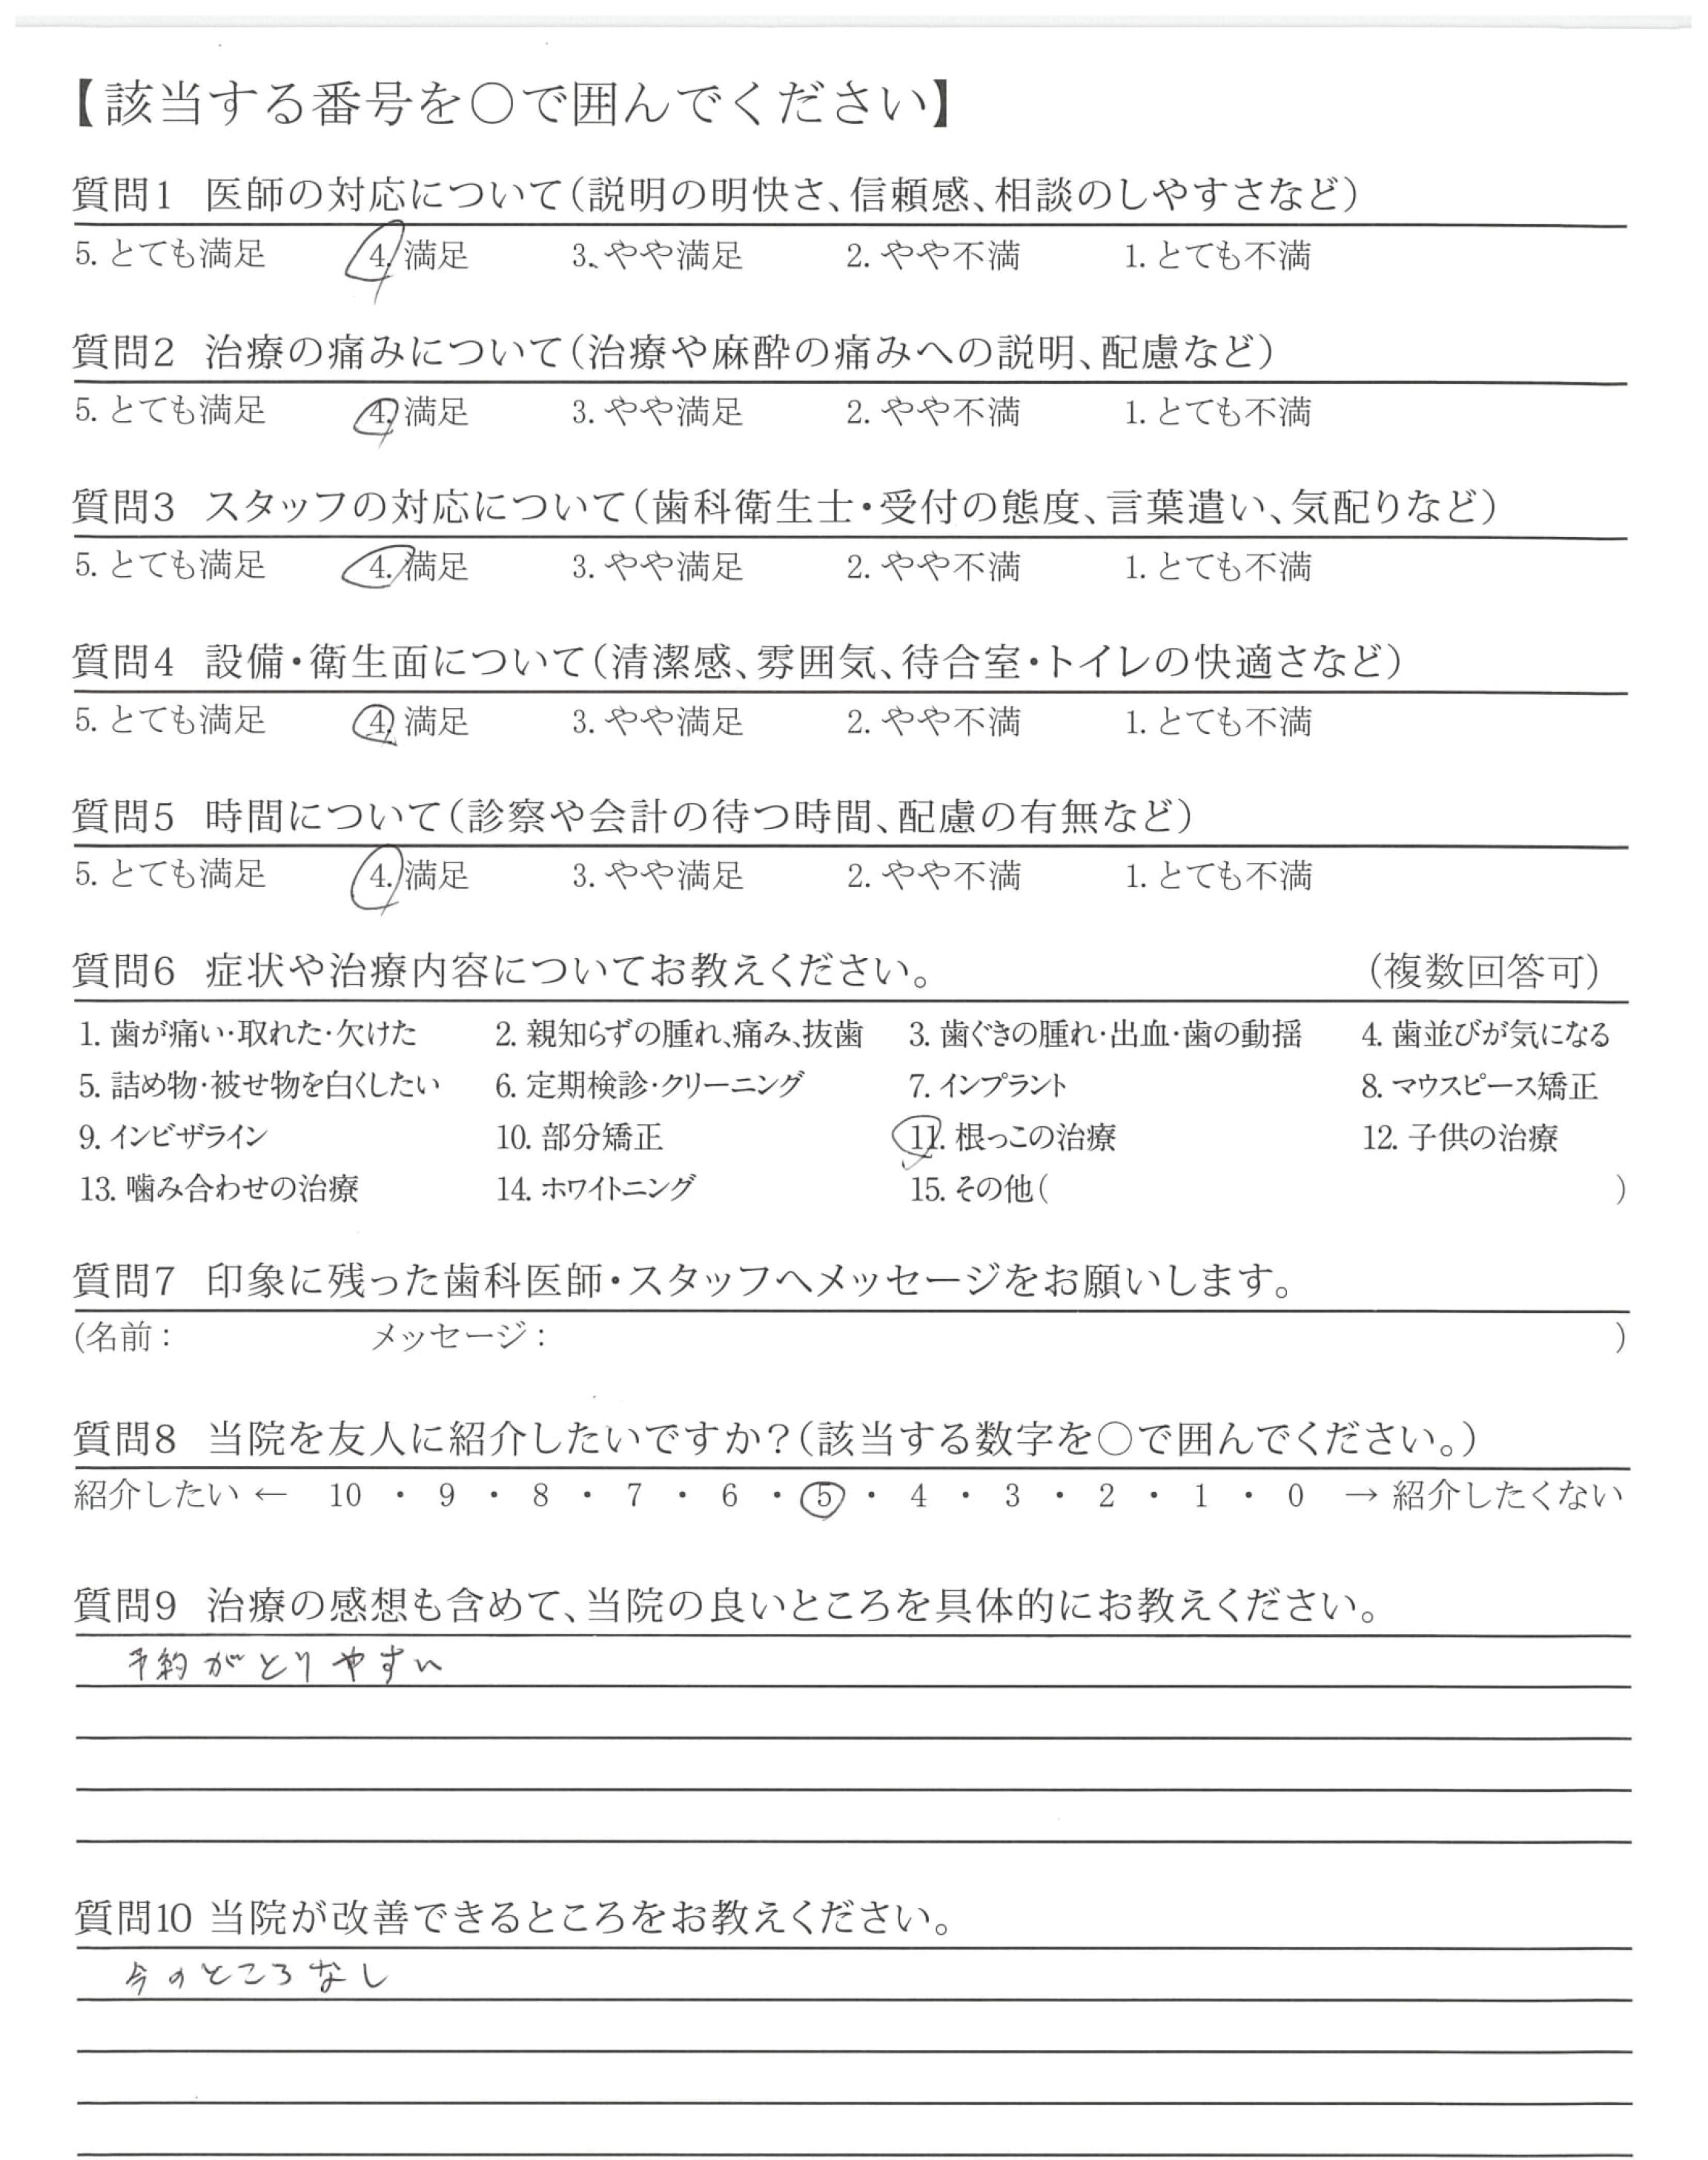 【該当する番号を○で囲んでください】
質問1 医師の対応について(説明の明快さ、信頼感、相談のしやすさなど)
5. とても満足 4. 満足 3. やや満足 2. やや不満 1. とても不満
質問2 治療の痛みについて(治療や麻酔の痛みへの説明、配慮など)
5. とても満足 4. 満足 3. やや満足 2. やや不満 1. とても不満
質問3 スタッフの対応について(歯科衛生士・受付の態度、言葉遣い、気配りなど)
5. とても満足 4. 満足 3. やや満足 2. やや不満 1. とても不満
質問4 設備・衛生面について(清潔感、雰囲気、待合室・トイレの快適さなど)
5. とても満足 4. 満足 3. やや満足 2. やや不満 1. とても不満
質問5 時間について(診察や会計の待つ時間、配慮の有無など)
5. とても満足 4. 満足 3. やや満足 2. やや不満 1. とても不満
質問6 症状や治療内容についてお教えください。 (複数回答可)
1. 歯が痛い・取れた・欠けた 2. 親知らずの腫れ、痛み、抜歯 3. 歯ぐきの腫れ・出血・歯の動揺 4. 歯並びが気になる
5. 詰め物・被せ物を白くしたい 6. 定期検診・クリーニング 7. インプラント 8. マウスピース矯正
9. インビザライン 10. 部分矯正 11. 根っこの治療 12. 子供の治療
13. 噛み合わせの治療 14. ホワイトニング 15. その他( )
質問7 印象に残った歯科医師・スタッフへメッセージをお願いします。
(名前： メッセージ： )
質問8 当院を友人に紹介したいですか?(該当する数字を○で囲んでください。)
紹介したい ← 10 ・ 9 ・ 8 ・ 7 ・ 6 ・ 5 ・ 4 ・ 3 ・ 2 ・ 1 ・ 0 → 紹介したくない
質問9 治療の感想も含めて、当院の良いところを具体的にお教えください。
予約がとりやすい
質問10 当院が改善できるところをお教えください。
今のところなし